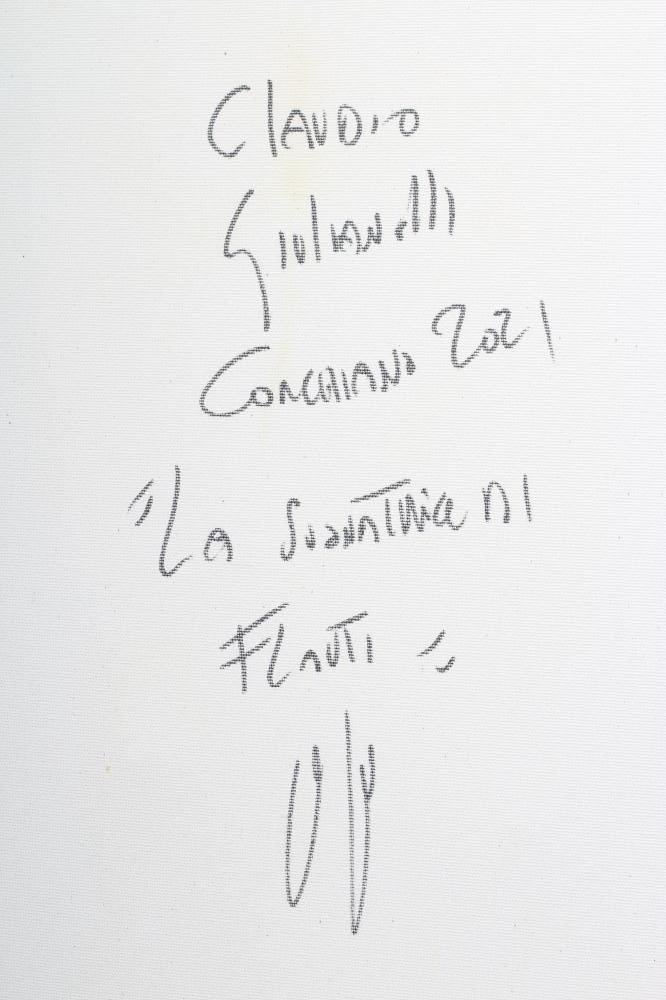 Claudio
Giulianelli
Corchiano 2021
"La suonatrice di
Flauti"